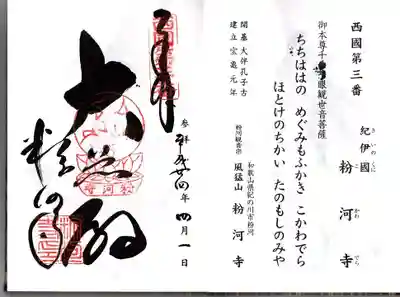 西國第三番
紀伊國 粉河寺
きいのくに こかわでら
御本尊千手千眼観世音菩薩
ちちははの めぐみもふかき こかわでら
ほとけのちかい たのもしのみや
開基 大伴孔子古
建立 宝亀元年
和歌山県紀の川市粉河
粉河観音宗 風猛山 粉河寺
参拝 平成廿四年 四月一日
奉拝
大悲殿
粉河寺